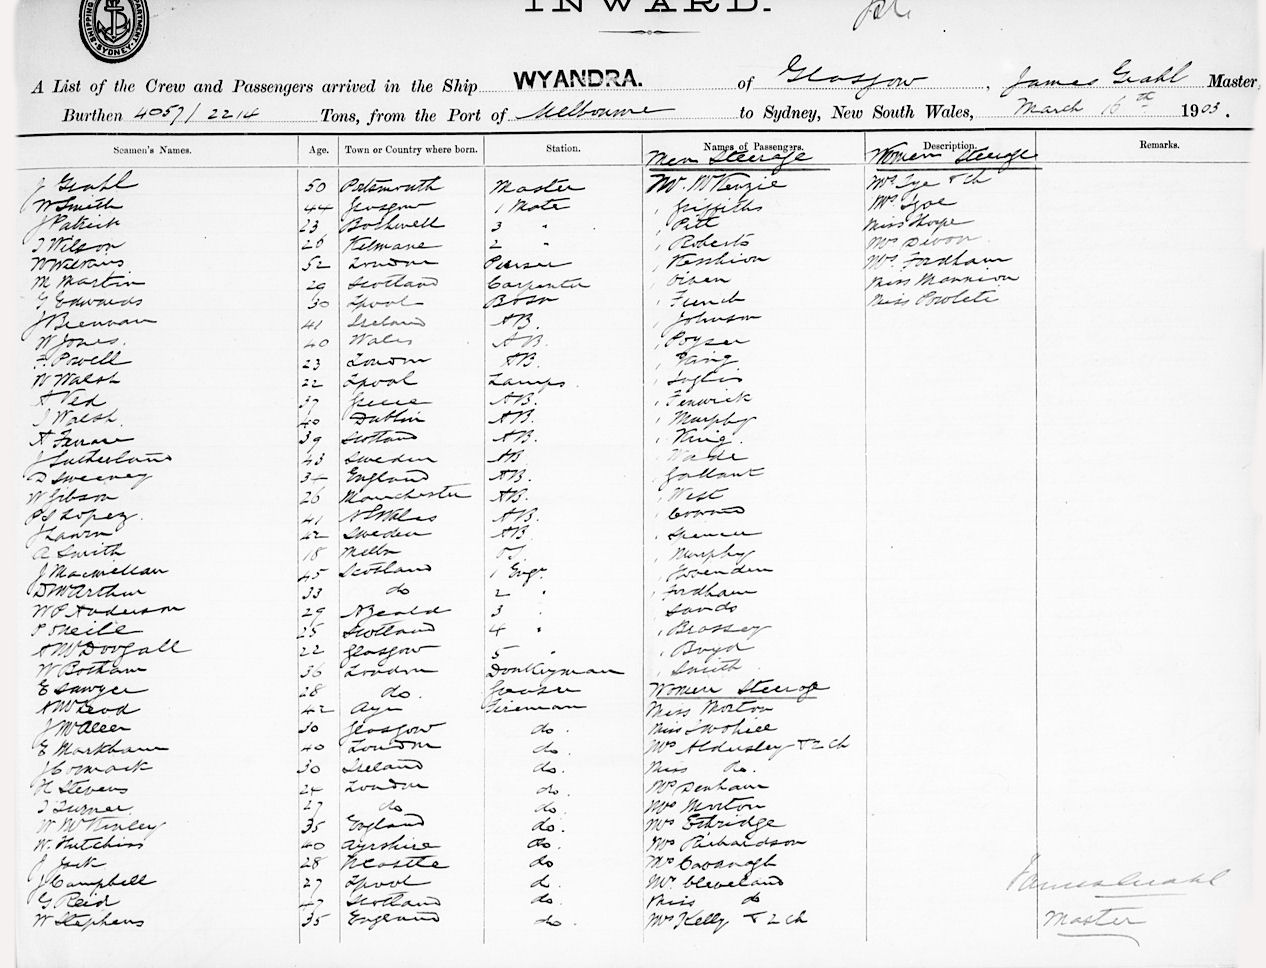 SHIPPING DEPARTMENT SYDNEY
INWARD.
A List of the Crew and Passengers arrived in the Ship WYANDRA. of Glasgow, James Grahl Master,
Burthen 4057/2214 Tons, from the Port of Melbourne to Sydney, New South Wales, March 16th 1903.
Seamen's Names. Age. Town or Country where born. Station. Names of Passengers. Description. Remarks.
Men Steerage Women Steerage
J Grahl 50 Portsmouth Master Mr. McKenzie Mrs Lye & ch
W Smith 44 Glasgow 1 Mate " Griffiths Mrs
J Patrick 23 Bothwell 3 " " Pitt Miss Thorpe
J Wilson 26 Kilmane 2 " " Roberts Mrs Devon
W Watkins 52 London Purser " Mrs Fordham
M Martin 29 Scotland Carpenter " Owen Miss Mannion
G Edwards 30 Lpool Bosn " French Miss Powlett
J Brennan 41 Ireland AB. " Johnson
W Jones. 40 Wales AB. " Poyser
F Powell 23 London AB. "
W Walsh 22 Lpool Lamps. " Inglis
A Ved 37 Greece AB. " Fenwick
J Walsh. 40 Dublin AB. " Murphy
A Farrar 39 Scotland AB. " King.
J Sutherland 43 Sweden AB " Wade
D Sweeney 34 England AB. " Gallant
W Gibson 26 Manchester AB. " West
P S Lopez. 41 N S Wales AB. "
J Lawn 42 Sweden AB. " Spencer
A Smith 18 Melbn OS. " Murphy
J Macwellan 45 Scotland 1 Engr. " Hovenden
D McArthur 33 do 2 " " Fordham
W P Anderson 29 N Zeald 3 " Sands
P O'Neile 25 Scotland 4 " " Brassey
A McDougall 22 Glasgow 5 " " Boyd
W Botham 36 London Donkeyman " Smith
E Sawyer 28 do. Greaser Women Steerage
A McLeod 42 Ayr Fireman Miss Morton
J McAleer 30 Glasgow do. Miss
E Markham 40 London do. Mrs Aldersley & 2 ch
J Cormack 30 Ireland do. Miss do.
H Stevens 24 London do. Mrs Denham
J Turner 27 do do. Mrs Morton
W McKinley 35 England do. Mrs Ethridge
W. Hutchiss 40 Ayrshire do. Mrs Richardson
J Jack 28 Ncastle do Mrs Cavanagh
J Campbell 27 Lpool d. Mrs Cleveland
G Reid 47 Scotland do. Miss do
W Stephens 35 England do. Mrs Kelly & 2 ch
James Grahl
Master